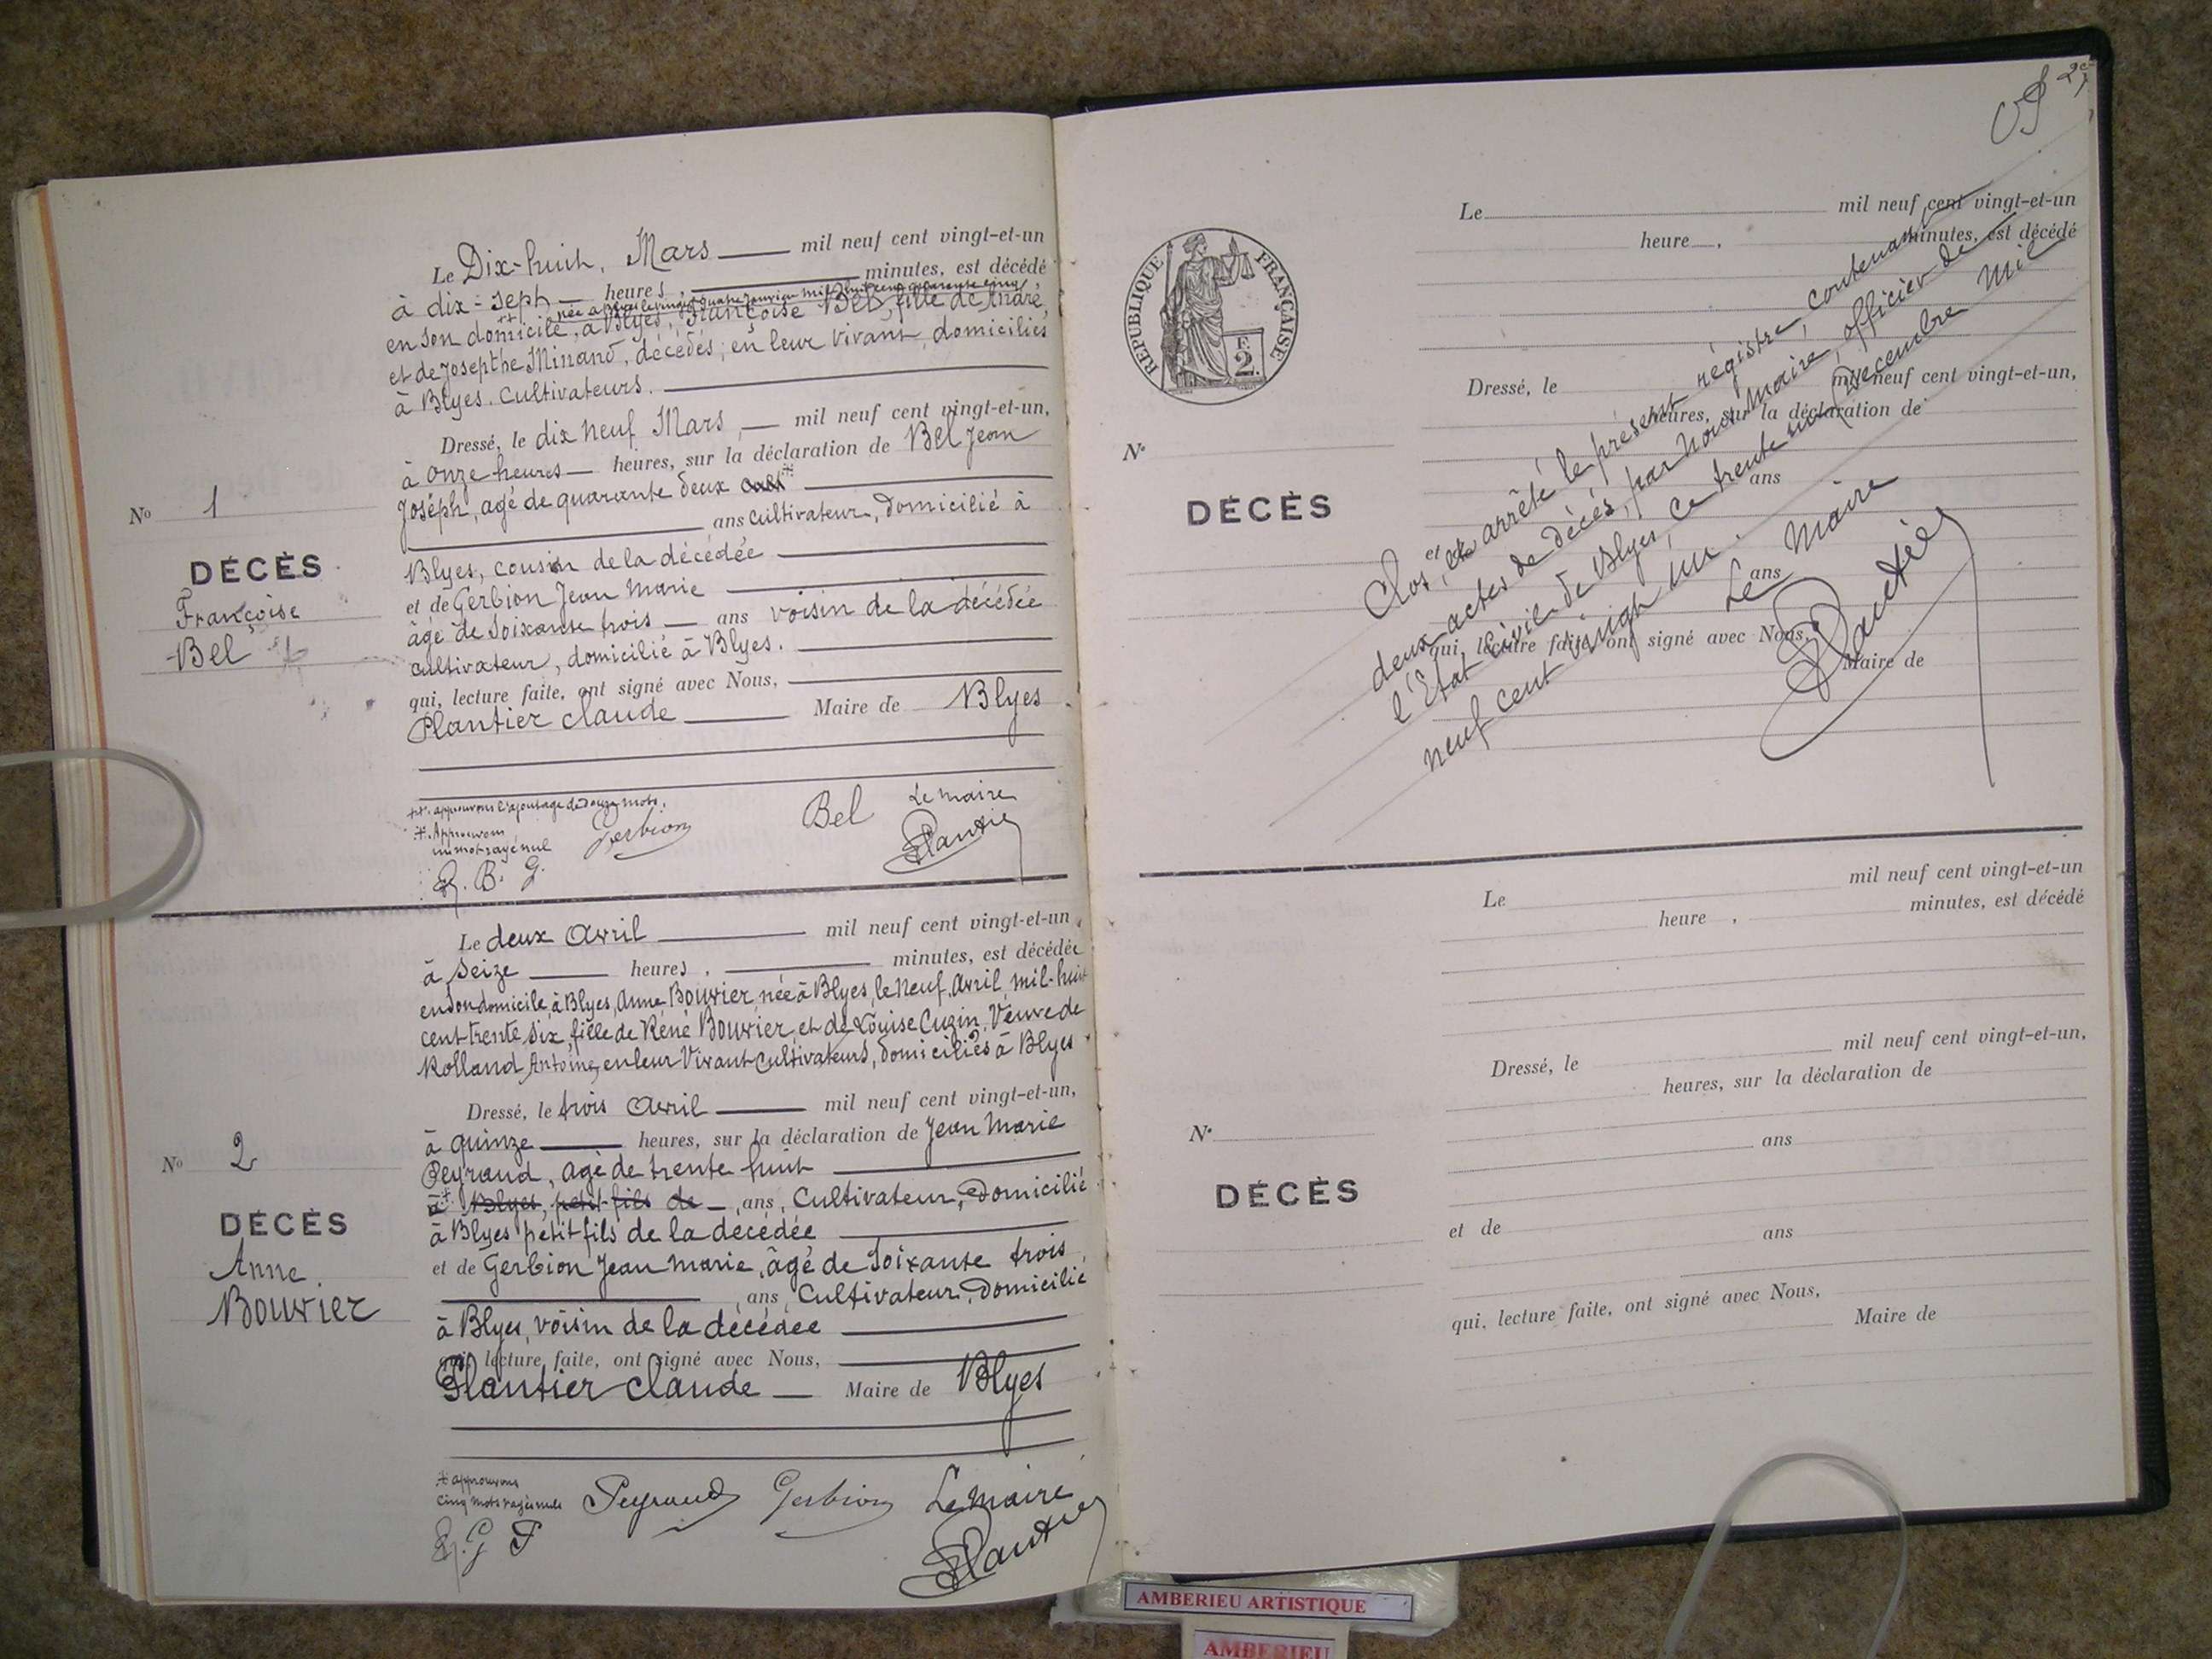 Le Dix-huit, Mars mil neuf cent vingt-et-un
à dix-sept heures, minutes, est décédé
née à Blyes le vingt quatre Janvier mil huit cent quarante cinq
en son domicile, à Blyes, Françoise Bel, fille de André,
et de Josepthe Minand, décédés, en leur vivant, domiciliés
à Blyes. Cultivateurs.
Dressé, le dix neuf Mars, mil neuf cent vingt-et-un,
à onze heures heures, sur la déclaration de Bel Jean
Joséph, agé de quarante deux ans
ans cultivateur, domicilié à
Blyes, cousin de la décédée
et de Gerbion Jean Marie
âgé de soixante trois ans voisin de la décédée
cultivateur, domicilié à Blyes.
qui, lecture faite, ont signé avec Nous,
Plantier Claude Maire de Blyes
No 1
DÉCÈS
Françoise
Bel
++. approuvons l'ajoutage de douze mots.
+. Approuvons
un mot rayé nul
P. B. G.
Gerbion
Bel
Le maire
Plantier
Le deux Avril mil neuf cent vingt-et-un
à seize heures, minutes, est décédée
en son domicile, à Blyes, Anne Bouvier née à Blyes, le neuf Avril, mil-huit
cent trente six, fille de Réné Bouvier, et de Louise Cuzin, Veuve de
Rolland Antoine, en leur Vivant Cultivateurs, domiciliés à Blyes
Dressé, le trois Avril mil neuf cent vingt-et-un,
à quinze heures, sur la déclaration de Jean Marie
Peyraud, agé de trente huit
à Blyes, petit fils de ans, Cultivateur, Domicilié
à Blyes petit fils de la décédée
et de Gerbion Jean marie, âgé de Soixante trois
ans, Cultivateur, Domicilié
à Blyes, voisin de la décédée
qui, lecture faite, ont signé avec Nous,
Plantier Claude Maire de Blyes
No 2
DÉCÈS
Anne
Bouvier
+ approuvons
cinq mots rayés nuls
P. G P
Peyraud
Gerbion
Le maire
Plantier
2e
RÉPUBLIQUE FRANÇAISE
F.
2.
Le mil neuf cent vingt-et-un
heure, minutes, est décédé
Dressé, le mil neuf cent vingt-et-un,
heures, sur la déclaration de
ans
ans
qui, lecture faite, ont signé avec Nous,
Maire de
No
DÉCÈS
Clos, et arrêté le présent régistre, contenant
deux actes de décès, par nous Maire, officier de
l'Etat civil de Blyes, ce trente un Decembre Mil
neuf cent vingt un.
Le Maire
Plantier
Le mil neuf cent vingt-et-un
heure, minutes, est décédé
Dressé, le mil neuf cent vingt-et-un,
heures, sur la déclaration de
ans
et de ans
qui, lecture faite, ont signé avec Nous,
Maire de
No
DÉCÈS
AMBERIEU ARTISTIQUE
AMBERIEU